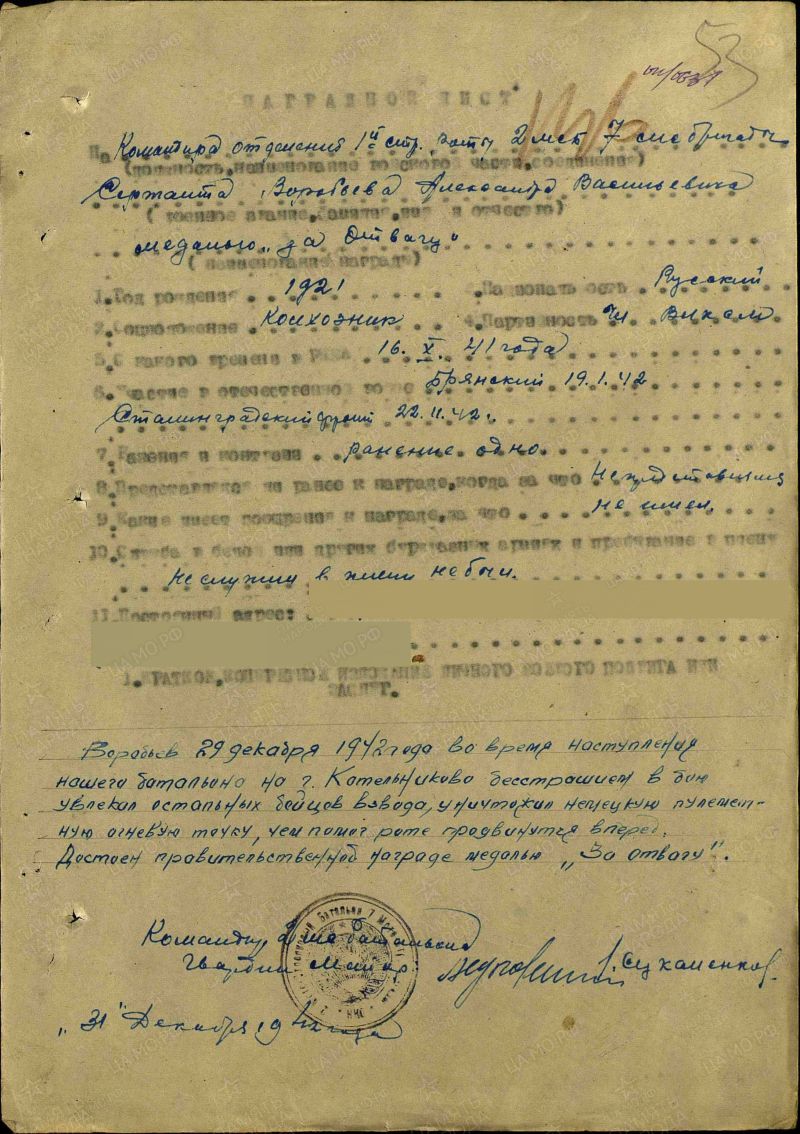 53
НАГРАДНОЙ ЛИСТ
На Командира отделения 1й стр. роты 2 мсб 7 бригады
(должность, наименование воинской части, соединения)
Сержанта Воробьева Александра Васильевича
(военное звание, фамилия, имя и отчество)
медалью „за Отвагу"
(наименование награды)
1. Год рождения 1921 Национальность Русский
2. Соцположение Колхозник 4. Партийность Чл ВЛКСМ
5. С какого времени в РККА 16. X. 41 года
6. Участие в отечественной войне Брянский 19.1.42
Сталинградский фронт 22.11.42.
7. Ранения и контузии ранение одно.
8. Представлялся ли ранее к награде, когда за что Не представлялся
9. Какие имеет поощрения и награде, за что не имел.
10. Служба в белой или других буржуазных армиях и пребывание в плену
не служил в плену не был.
11. Постоянный адрес:
1. КРАТКОЕ, КОНКРЕТНОЕ ИЗЛОЖЕНИЕ ЛИЧНОГО БОЕВОГО ПОДВИГА ИЛИ
ЗАСЛУГ.
Воробьев 29 декабря 1942 года во время наступления
нашего батальона на г. Котельниково бесстрашием в бою
увлекал остальных бойцов взвода, уничтожил немецкую пулемет-
ную огневую точку, чем помог роте продвинутся вперед.
Достоен правительственной награде медалью „За отвагу".
Командир 2 батальона
Гвардии Майор
„31" Декабря 1942 года